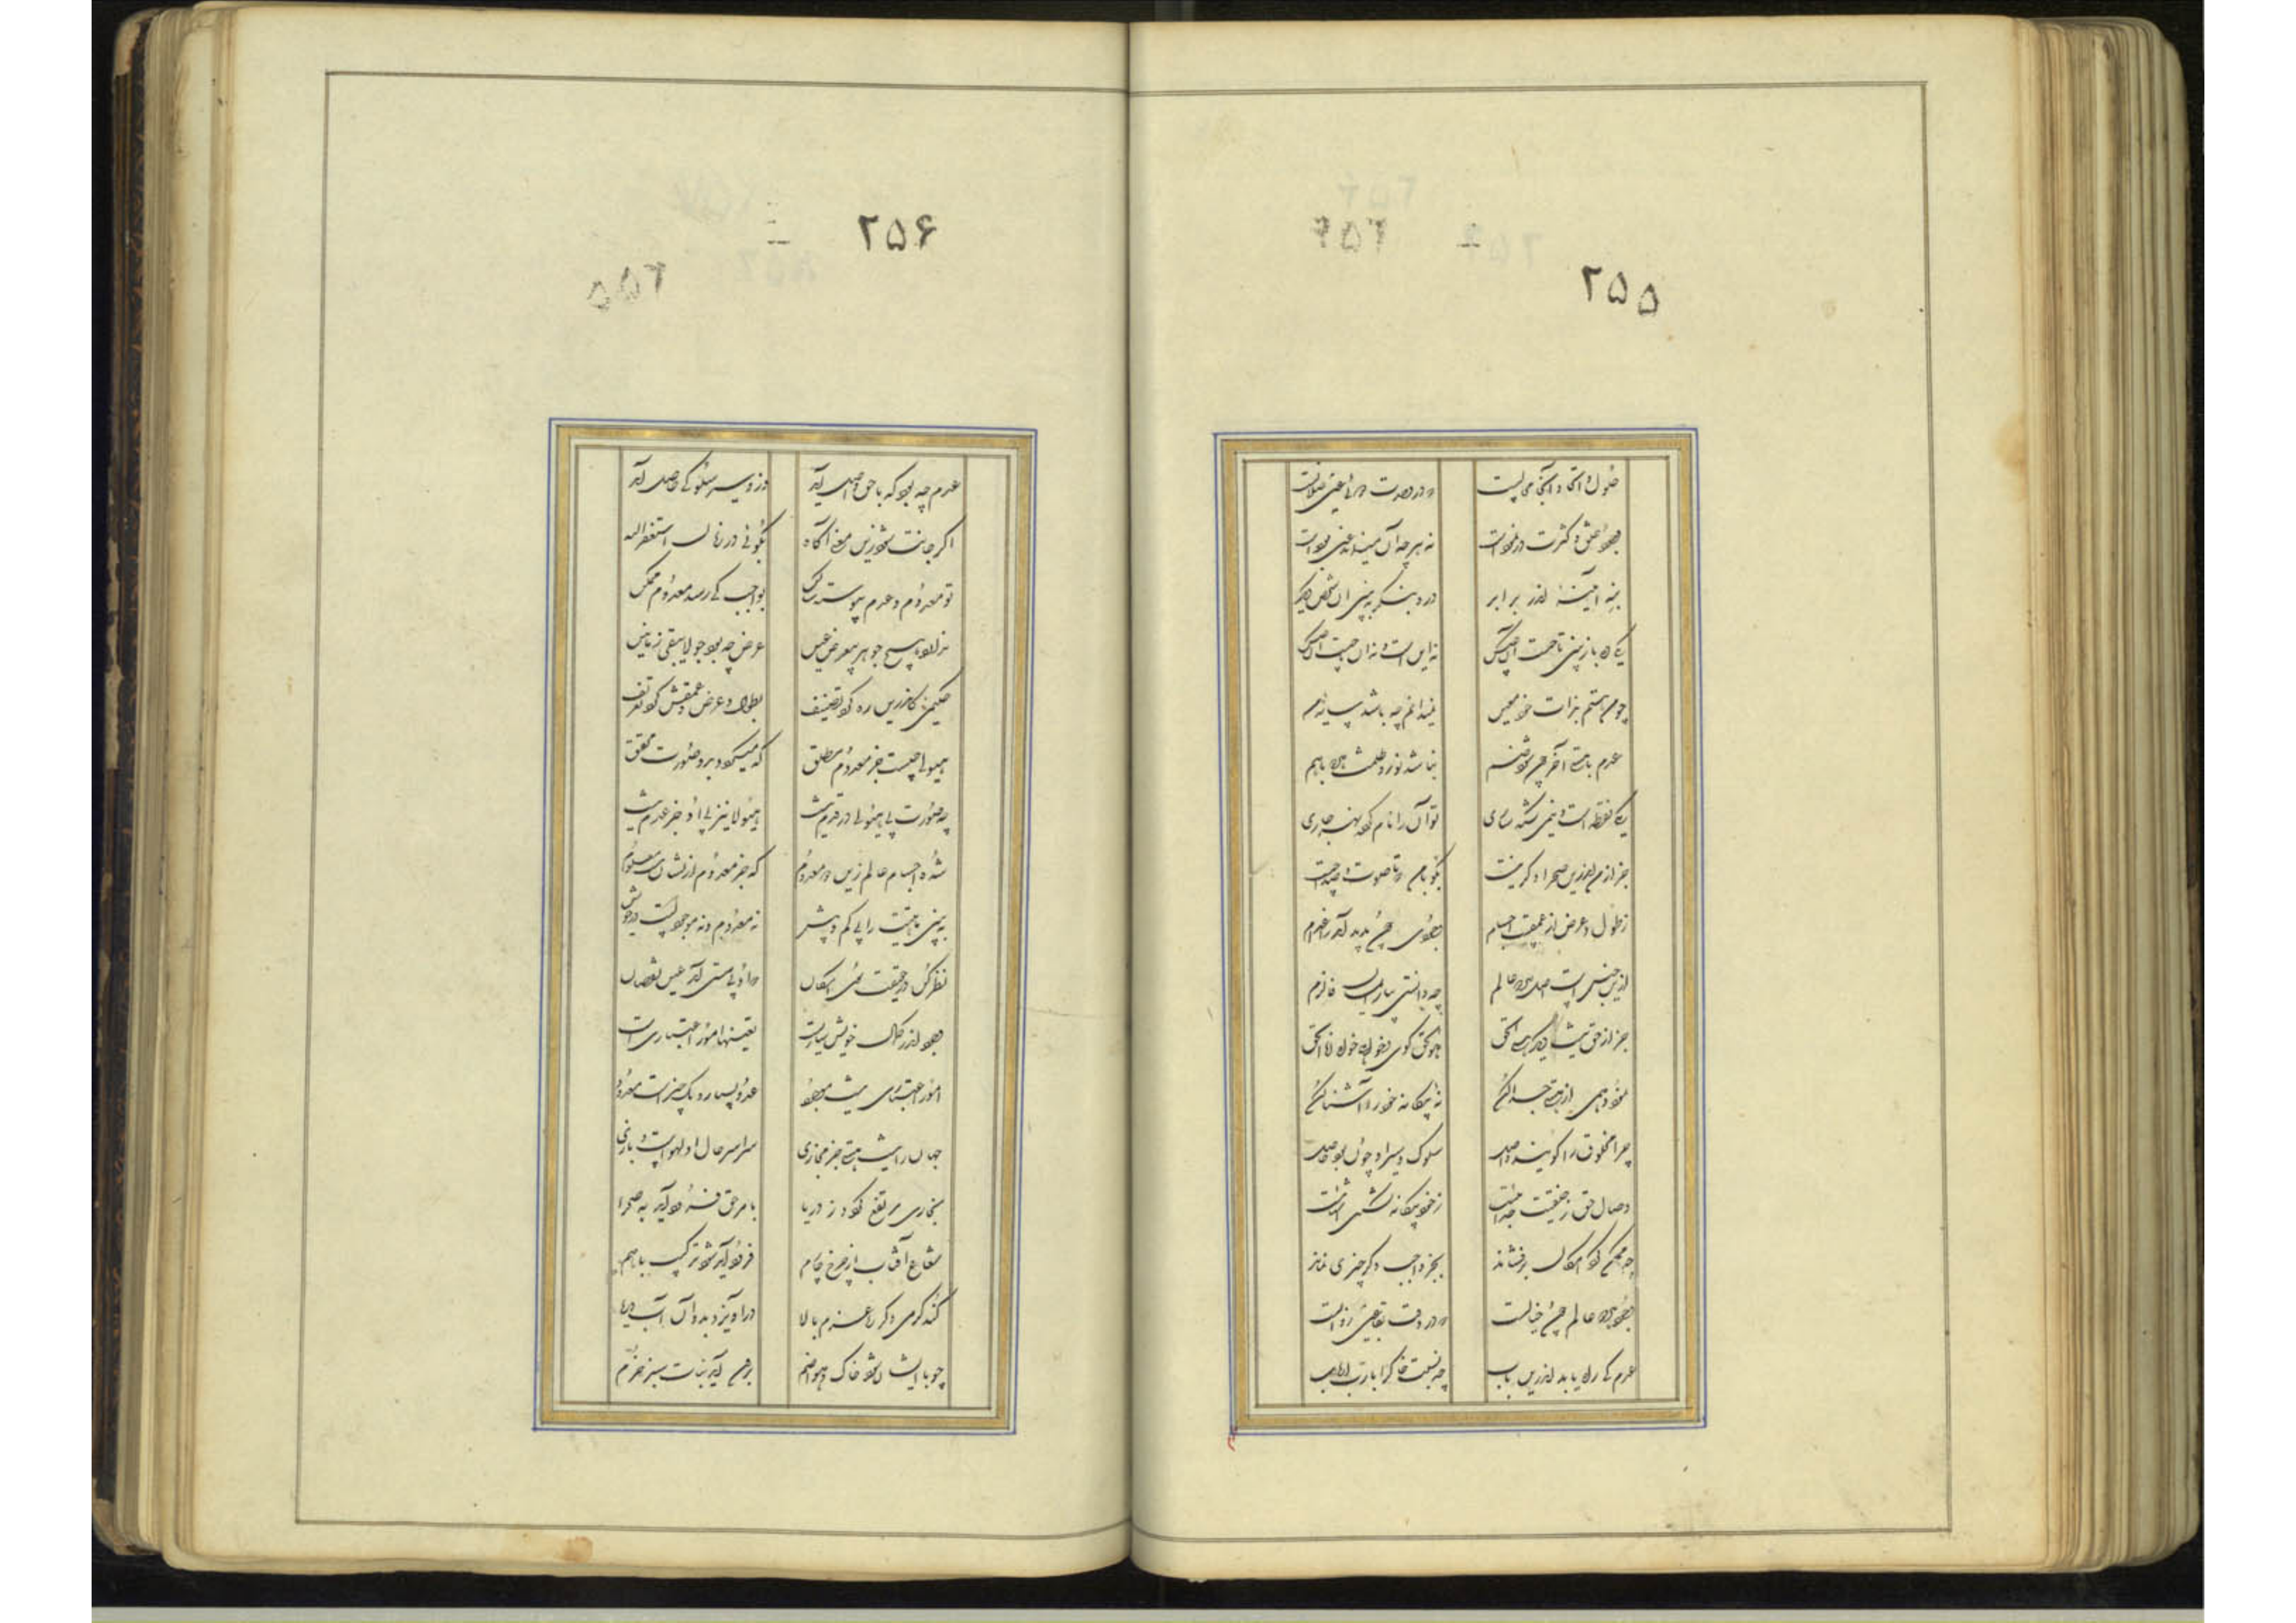 ۲۵۵
حلول و اتحاد اینجا محالست
که در وحدت دوئی عین ضلالست
وجود خلق و کثرت در نمود است
نه هر چه آن مینماید عین بود است
بنه آیینه اندر برابر
درو بنگر ببین آن شخص دیگر
یکی ره باز بین تا چیست آن عکس
نه این است و نه آن چیست آن عکس
چو من هستم بذات خود معین
نمیدانم چه باشد سایه من
عدم با هستی آخر چون شود ضم
نباشد نور و ظلمت هر دو با هم
یکی نقطه است وهمی گشته ساری
تو آن را نام کرده نهر جاری
جز از من اندرین صحرا دگر کیست
بگو با من که تا صوت و صدا چیست
ز طول و عرض و از عمقست اجسام
وجودی چون پدید آید ز اعدام
ازین جنس است اصل جمله عالم
چو دانستی بیار ایمان فالزم
جز از حق نیست دیگر هستی الحق
هو الحق گوی و گر خواهی انا الحق
نمود وهمی از هستی جدا کن
نه بیگانه خود را آشنا کن
چرا مخلوق را گویند واصل
سلوک و سیر او چون بود حاصل
وصال حق ز خلقیت جدائیست
ز خود بیگانه گشتن آشنائیست
چو ممکن گرد امکان برفشاند
بجز واجب دگر چیزی نماند
وجود هر دو عالم چون خیالست
که در وقت بقا عین زوالست
عدم کی راه یابد اندرین باب
چه نسبت خاک را با رب ارباب
۲۵۶
عدم چه بود که با حق واصل آید
وزو سیر و سلوکی حاصل آید
اگر جانت شود زین معنی آگاه
بگوئی در زمان استغفر الله
تو معدوم و عدم پیوسته ساکن
بواجب کی رسد معدوم ممکن
ندارد هیچ جوهر بی عرض عین
عرض چه بود چو لایبقی زمانین
حکیمی کاندرین ره کرد تصنیف
بطول و عرض و عمقش کرد تعریف
هیولی چیست جز معدوم مطلق
که میگردد برو صورت محقق
چو صورت بی هیولی در قدم نیست
هیولا نیز بی او جز عدم نیست
شده اجسام عالم زین دو معدوم
که جز معدوم ازیشان نیست معلوم
ببین ماهیت را بی کم و بیش
نه معدوم و نه موجود است در خویش
نظر کن در حقیقت سوی امکان
که او بی هستی آمد عین نقصان
وجود اندر کمال خویش ساریست
تعینها امور اعتباری است
امور اعتباری نیست موجود
عدد بسیار و یک چیز است معدود
جهان را نیست هستی جز مجازی
سراسر حال او لهو است و بازی
بخاری مرتفع گردد ز دریا
بامر حق فرود آید به صحرا
شعاع آفتاب از چرخ چارم
فرود آید شود ترکیب با هم
کند گرمی دگر ره عزم بالا
درآویزد بدو آن آب دریا
چو با ایشان شود خاک و هوا ضم
برون آید نبات سبز خرم